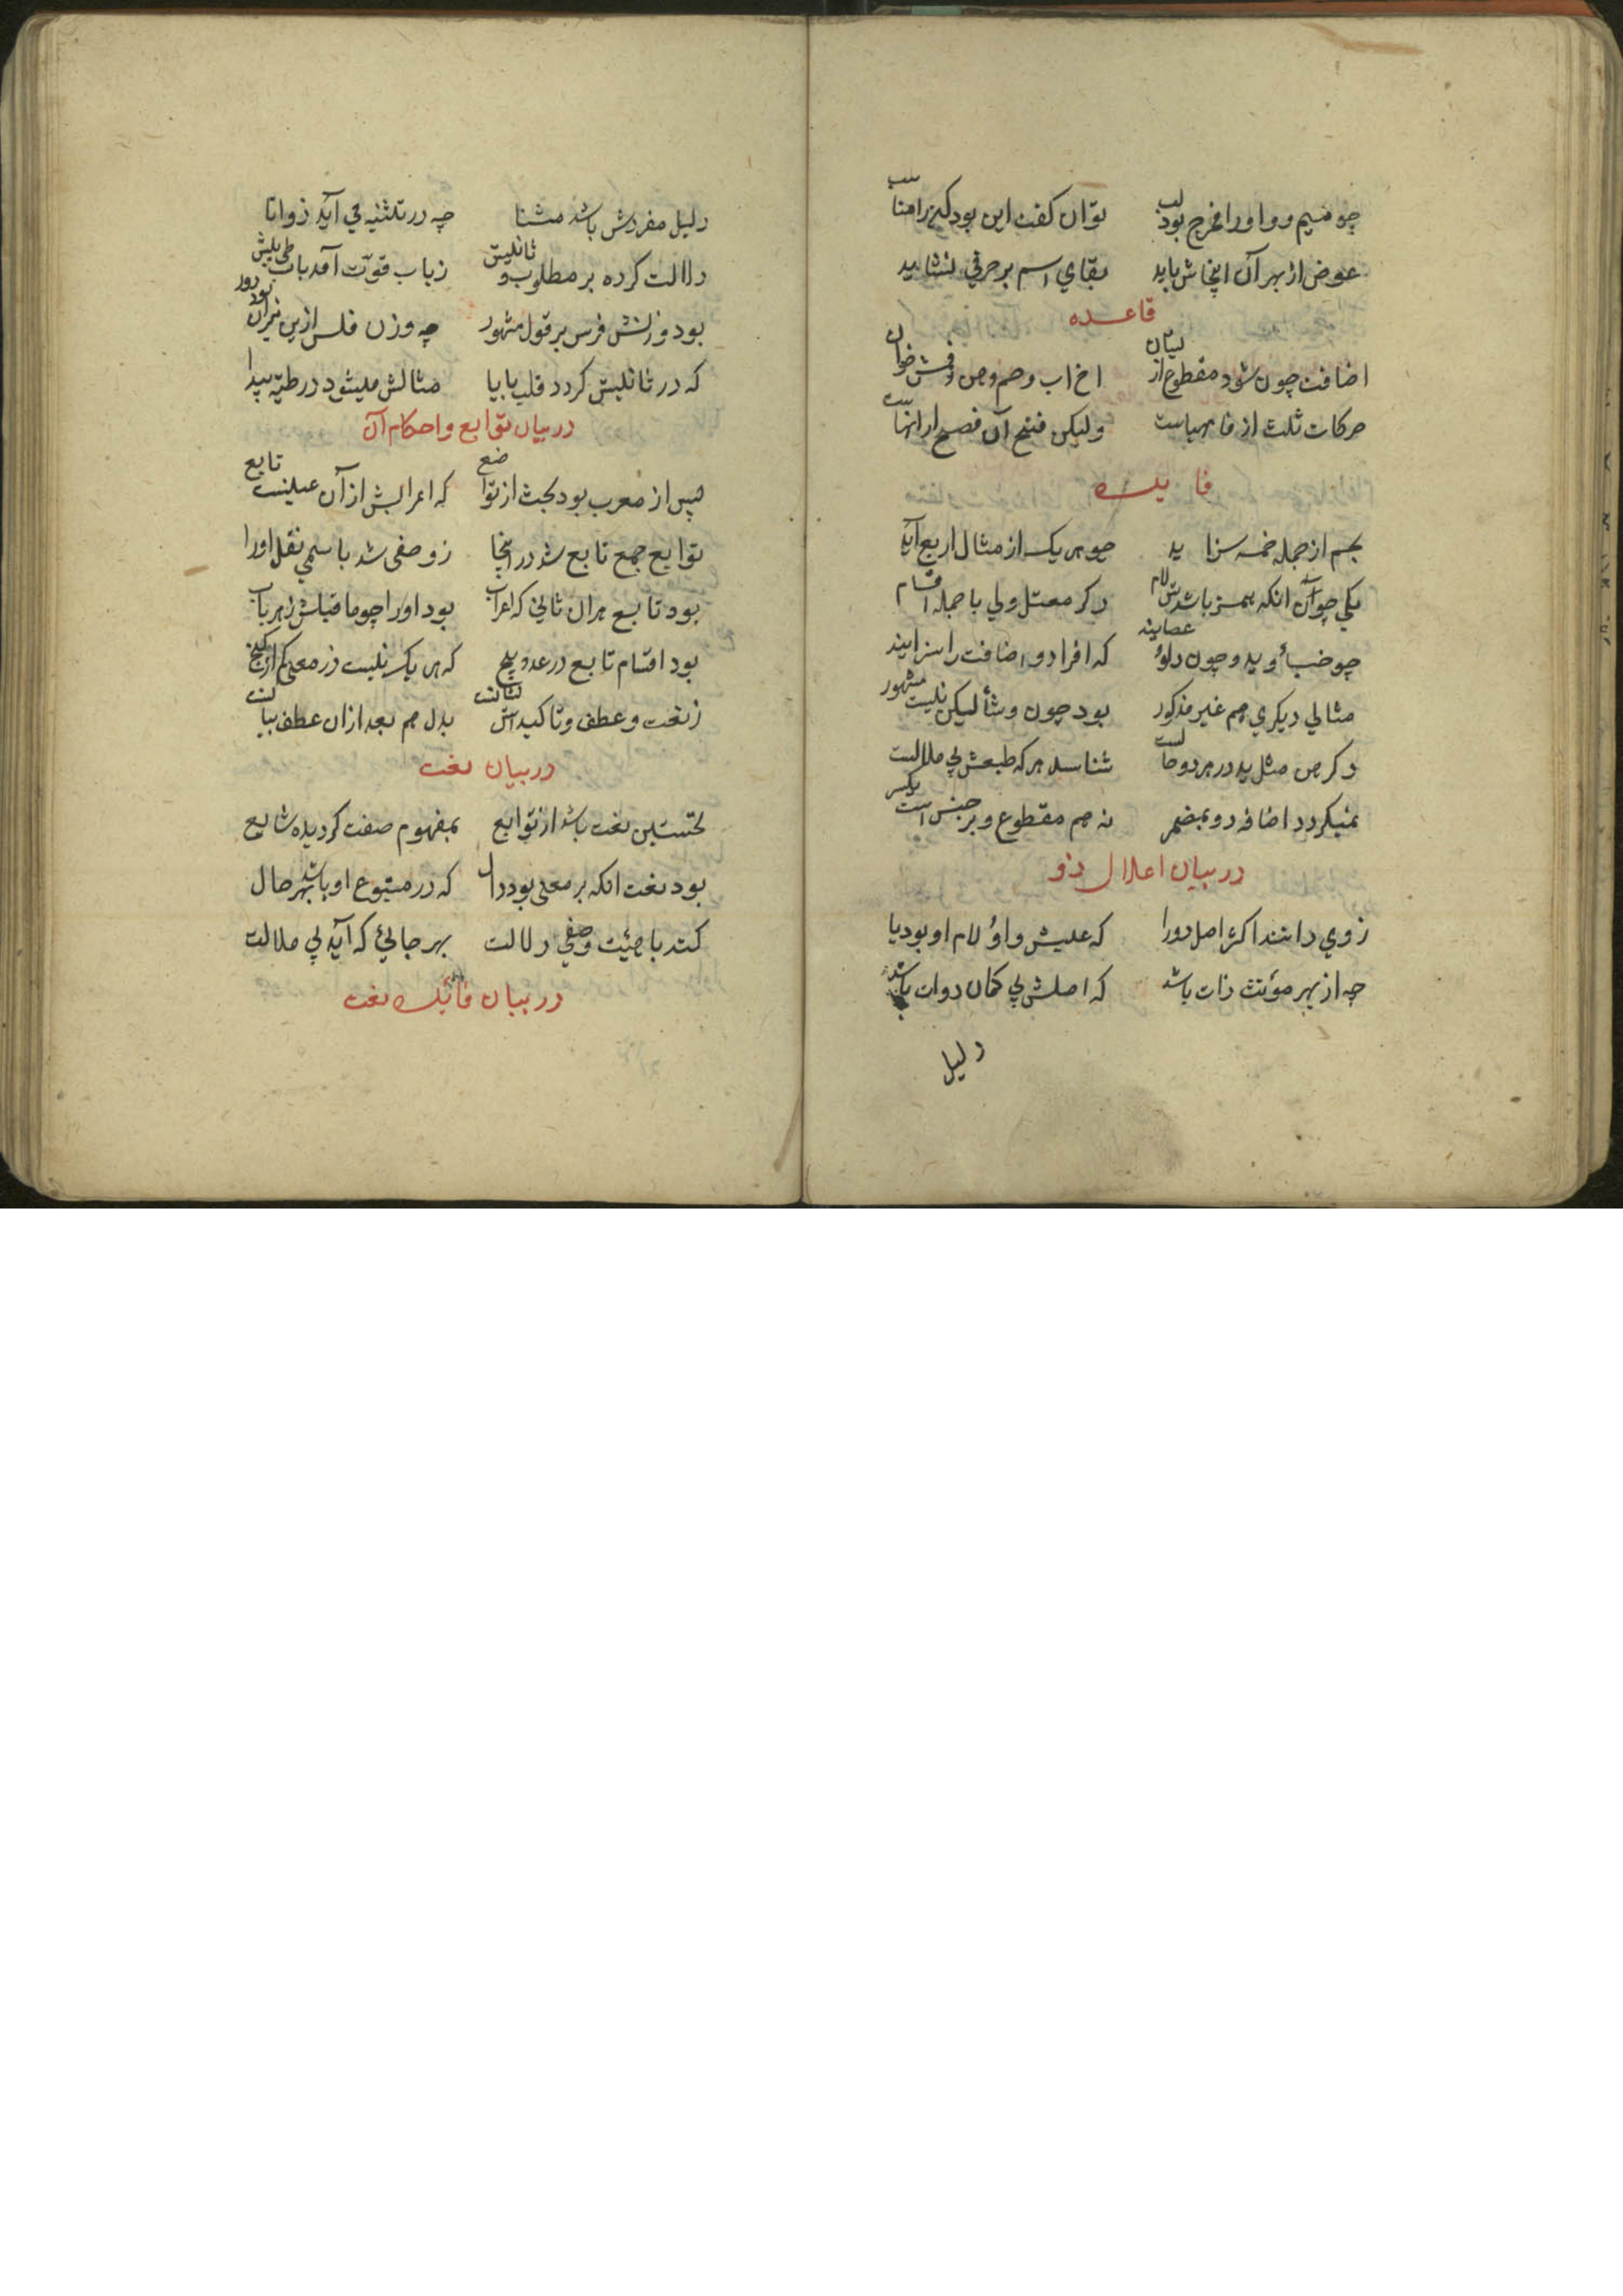 چو میم و واو را مخرج بود لب توان گفت این بود کین را مناسب
عوض از بهر آن اینجاش باید بقای اسم بر حرفی نشاید
قاعده
اضافت چون شود مقطوع از ایشان اخ اب و حم و هن و فش خوان
حرکات ثلث از فا مهیاست ولیکن فتح آن فصیح از انهاست
فایده
بحم از جمله خمسه سزاید چو هر یک از مثال اربع آید
یکی چو آن انکه همز باشدش لام دکر معتل ولی با جمله اقسام
چو خبأ و ید و چون دلو عصایند که افراد و اضافت را سزایند
مثالی دیکری هم غیر مذکور بود چون رشأ لیکن نیست مشهور
دکر هن مثل ید در هر دو حالت شناسد هر که طبعش بی ملالست
نمیکردد اضافه ذو بمضمر نه هم مقطوع و بر جنس است یکسر
در بیان اعلال ذو
ذوی دانند اکثر اصل ذو را که عینش واو لام او بود یا
چه از بهر مؤنث ذات باشد که اصلش بی کمان ذوات باشد
دلیل
دلیل مفردش باشد مثنا چه در تثنیه می آید ذواتا
دلالت کرده بر مطلوب و تانیث ز باب قوت آمد باب طی بیش
بود وزنش فرس بر قول مشهور چه وزن فلس ازین میزان بود دور
که در تانیثش کردد قلب یا با مثالش میشود در طیه پیدا
در بیان توابع و احکام آن
پس از معرب بود بحث از تواضع که اعرابش از آن عینست تابع
توابع جمع تابع شد در اینجا ز وصفی شد باسمی نقل او را
بود تابع هر ان ثانی که اعراب بود او را چو ماقبلش ز هر باب
بود اقسام تابع در عدد پنج که هر یک نیست در معنی کم از کنج
ز نعت و عطف و تاکید است بدل هم بعد ازان عطف
در بیان نعت
نخستین نعت باشد از توابع بمفهوم صفت کردیده شایع
بود نعت انکه بر معنی بود دال که در متبوع او باشد بهر حال
کند با هیئت وصفی دلالت بهر جائی که آید بی ملالت
در بیان فائده نعت